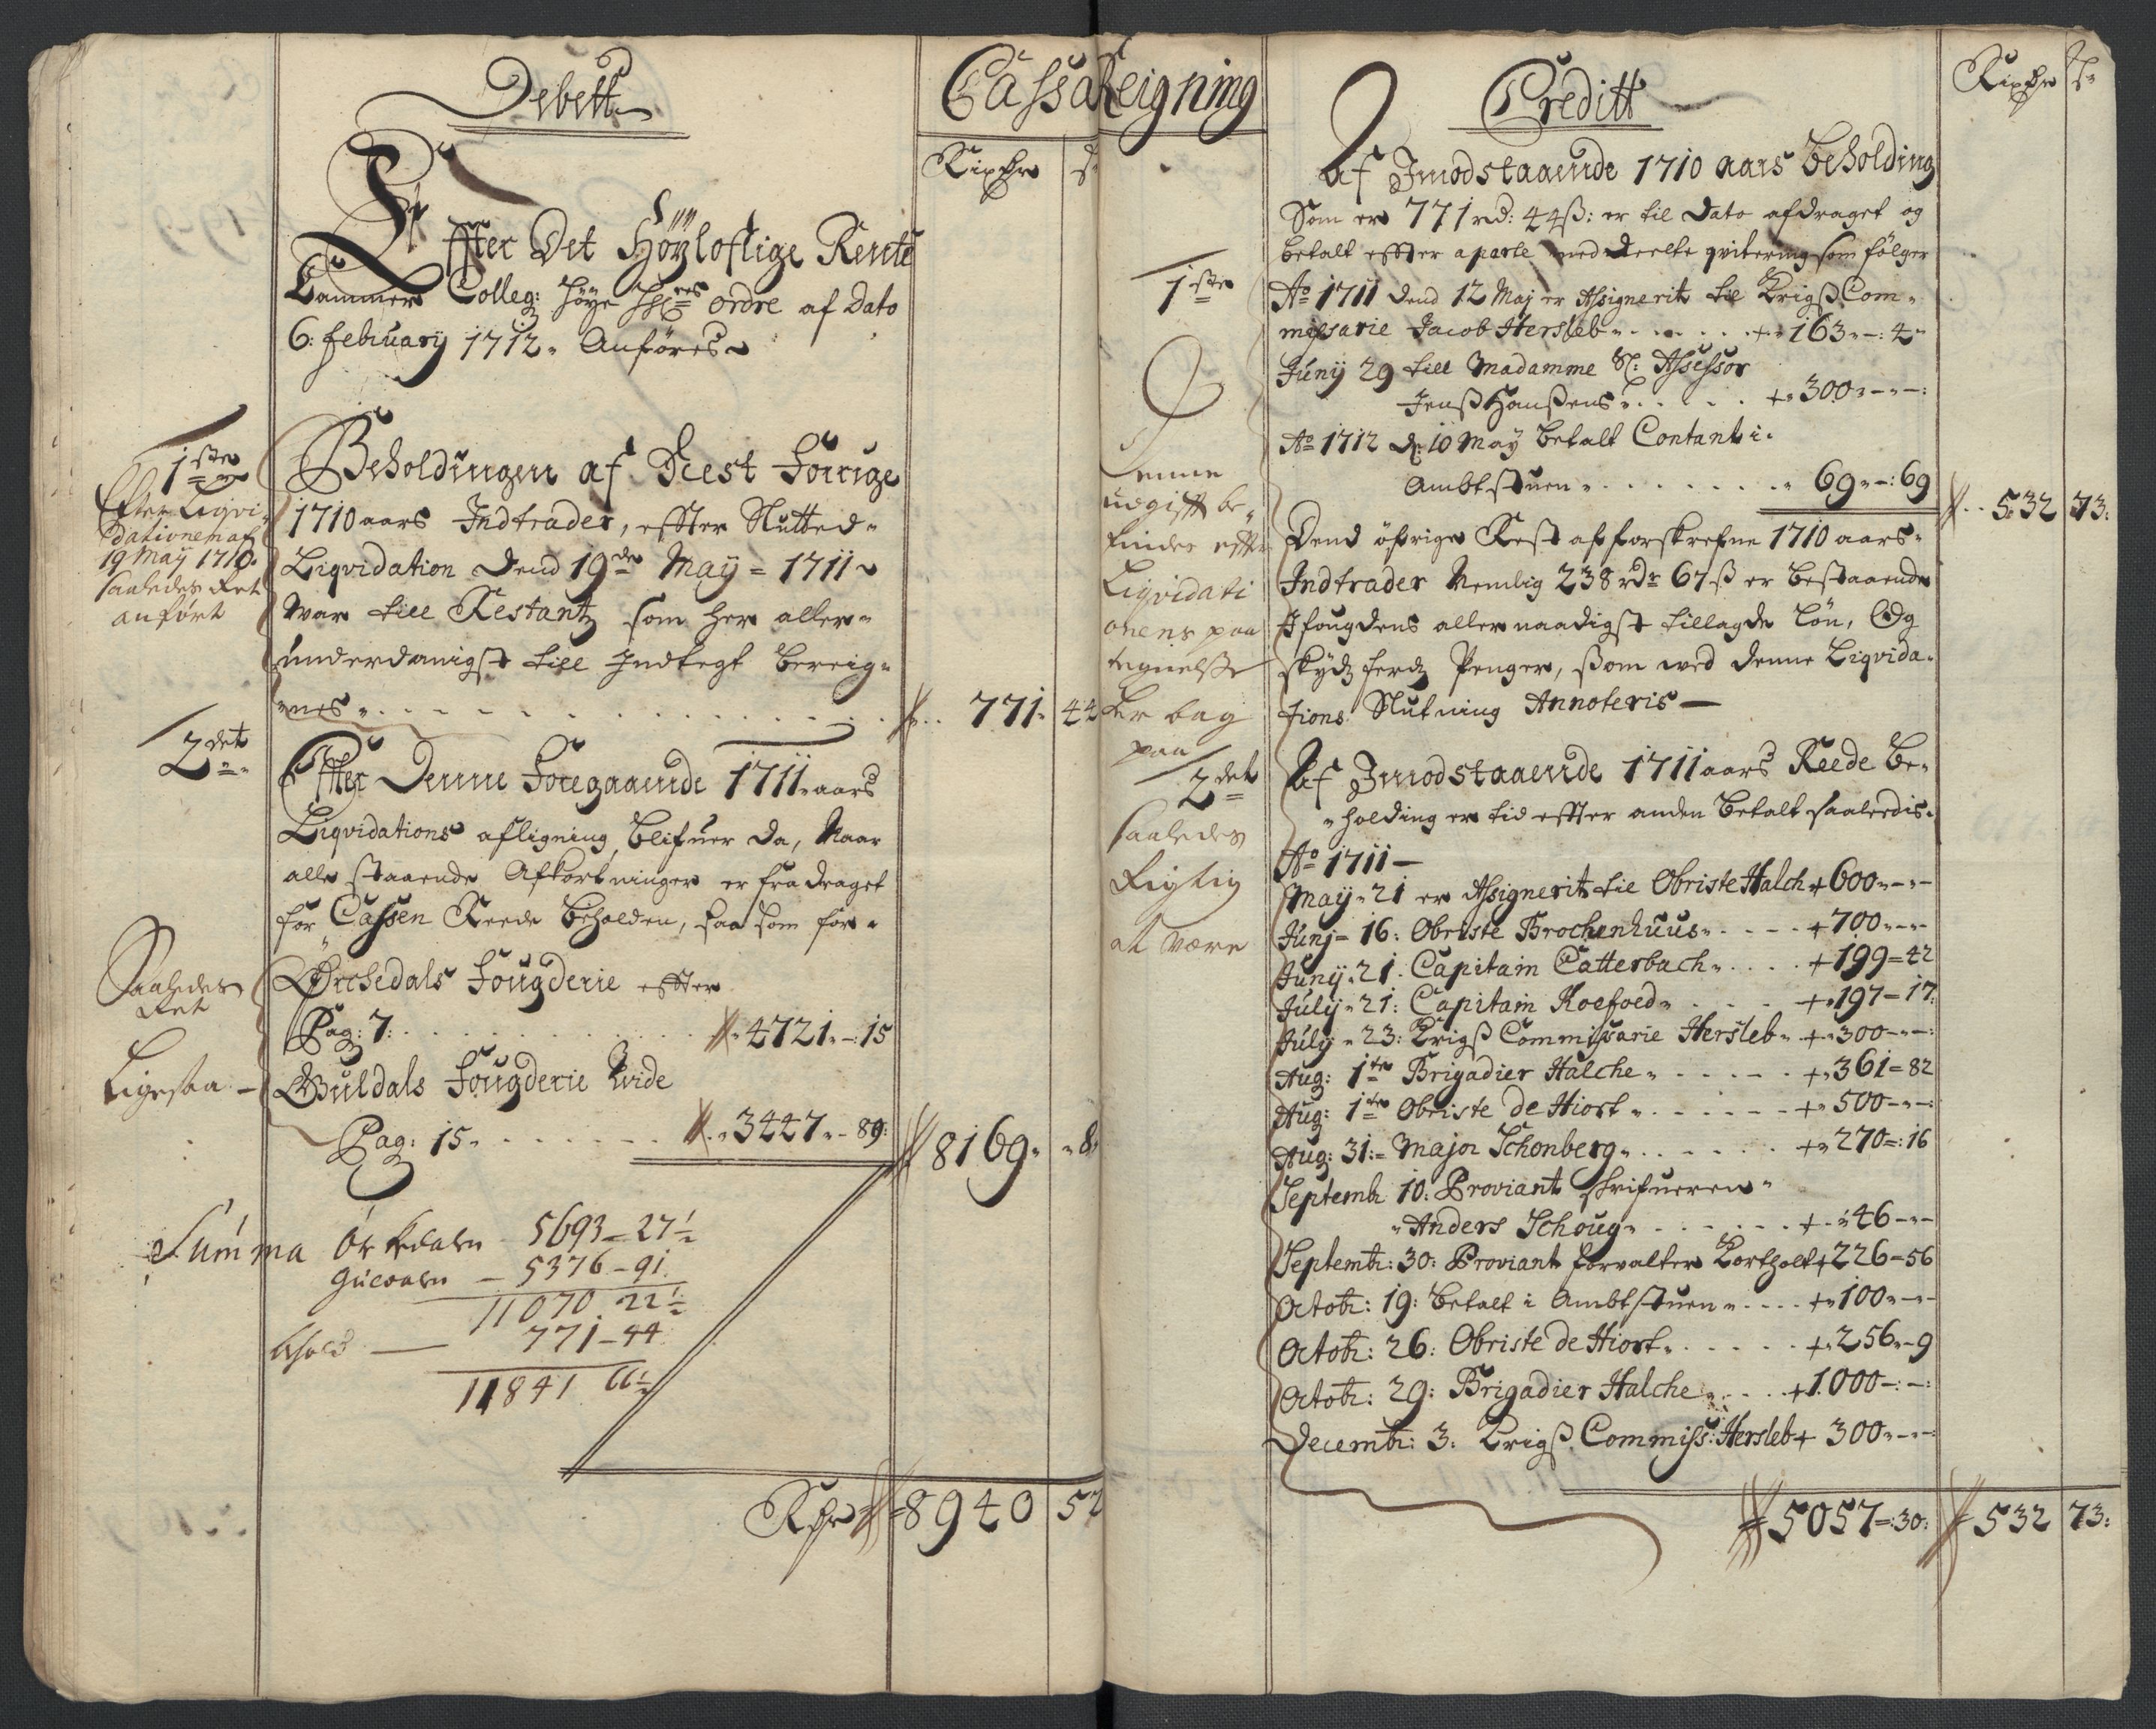 Debett
Cassa Reigning
Rixdr ß
Effter Det Höyloflige Rente
Cammer Colleg: höye Hres ordre af Dato
6: february 1712. Anföres
1ste
Efter Liqvi-
dationem af
19 Maÿ 1710.
saaledes Ret
anfört
Beholdingen af Rest Forrige
1710 aars Indtrader, effter Slutted
Liqvidation Dend 19de Maÿ = 1711
War till Restantz som her aller-
underdanigst till Indtegt bereig-
nes 771. 44
2det
Effter Denne Foregaaende 1711. aars
Liqvidations afligning, blifuer da, Naar
alle staaende Afkortninger er fradraget
for Cassen Reede beholden, saa som for
Saaledes
Ret
Orchedals Fougderie effter
Pag: 7: 4721 - 15
Ligesaa -
Guldals Fougderie Vide
Pag: 15 3447 - 89: 8169 8
Summa Orkedalen 5693 - 27½
Guldalen - 5376 - 91.
11070. 22½
behold — 771 - 44
11841 66½
Rdr 8940 52
Creditt
Rixdr ß
Af Imodstaaende 1710 aars beholding
Som er 771 rd: 44ß: er til Dato afdraget og
betalt effter aparte meddeelte qvitering som fölger
1ste
Ao 1711 dend 12 Maj er Assignerit til Krigs Com-
missarie Jacob Hersleb + 163 - 4
Junÿ 29 till Madamme Sl: Assessor
Jenß Hanßens + 300 - -
Ao 1712 d: 10 Maÿ betalt Contant i
Ambtstuen 69 - 69 532 73:
Denne
udgifft be-
findes effter
Liqvidati
onens paa
tegnelse
her bag
paa
Dend öfrige Rest af forskrefne 1710 aars
Indtrader Nemlig 238 rdr 67ß er bestaaende
I fougdens allernaadigst tillagde Lön, Og
skydtzferdtz Penger, ßom ved denne Liqvida-
tions Slutning Annoteris —
2det
Saaledes
Rigtig
at være
Af Imodstaaende 1711 aars Reede be-
holding er tid effter anden betalt saaledis
Ao 1711 —
Maÿ 21 er Assignerit til Obriste Halch + 600 - -
Junj 16: Obriste Brochenhuus + 700 - -
Junÿ 21. Capitain Catterbach + 199 = 42
Julÿ 21: Capitain Koefoed + 197 - 17:
Julÿ 23: Krigß Commissarie Hersleb + 300 - -
Aug: 1te Brigadier Halche + 361 = 82
Aug: 1te Obriste de Hiort + 500 - -
Aug: 31: Major Schonberg + 270 = 16
Septembr 10: Proviant skrifueren
Anders Schoug + 46 - -
Septembr: 30: Proviant forvalter Kortholt + 226 = 56
Octobr: 19: betalt i Ambtstuen + 100 - -
Octobr: 26: Obriste de Hiort + 256 - 9
Octobr: 29: Brigadier Halche + 1000 - -
Decembr: 3: Krigß Commiss: Hersleb + 300 - -
5057 = 30: 532 73: